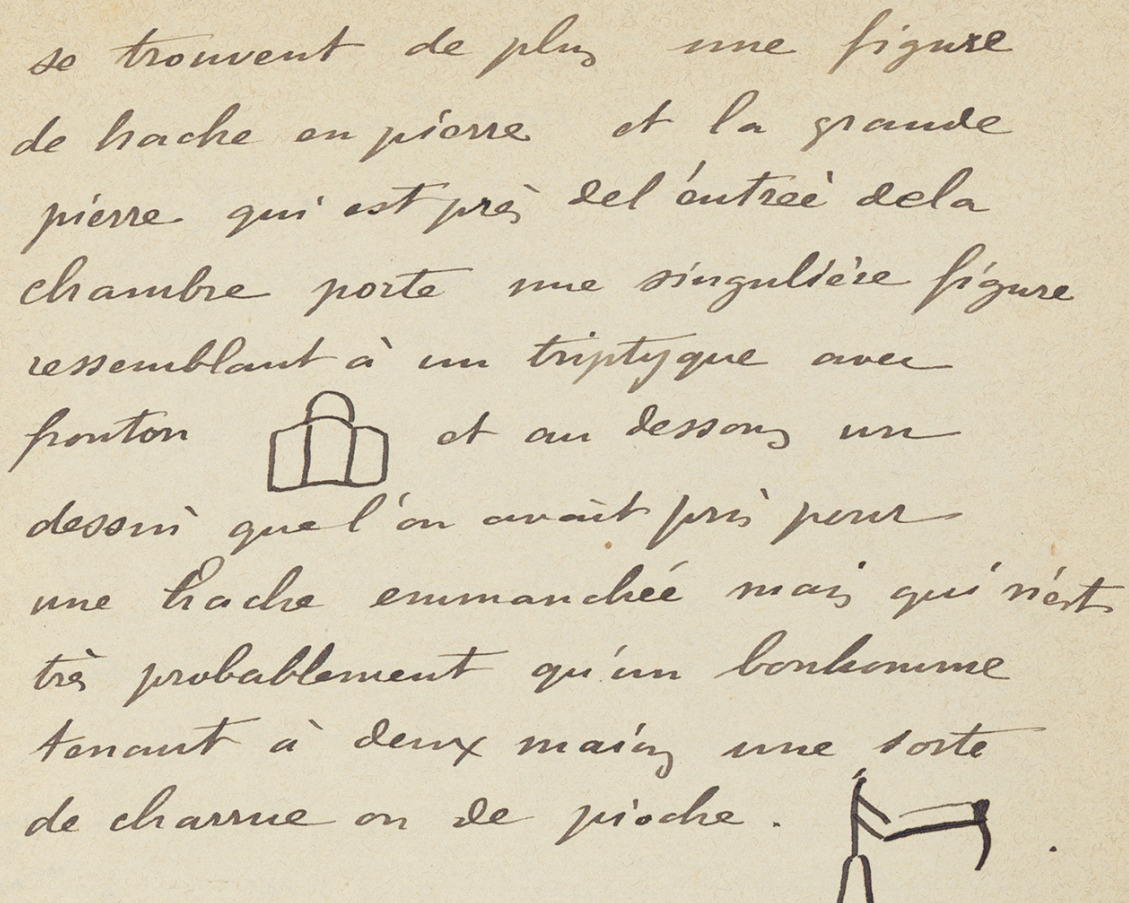 se trouvent de plus une figure
de hache en pierre et la grande
pierre qui est près de l'entrée de la
chambre porte une singulière figure
ressemblant à un triptyque avec
fronton et au dessous un
dessin que l'on avait pris pour
une hache emmanchée mais qui n'est
très probablement qu'un bonhomme
tenant à deux mains une sorte
de charrue ou de pioche .